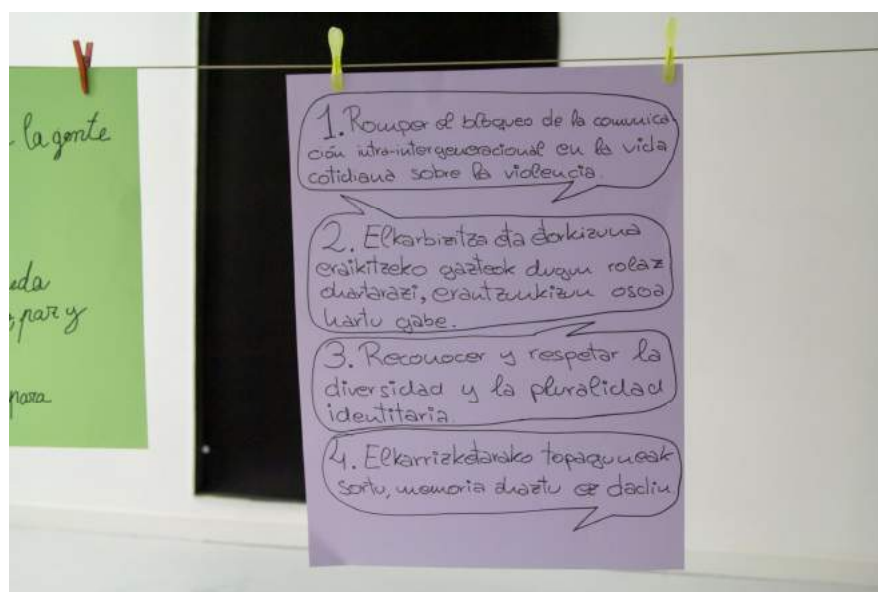 la gente
par y
para
1. Romper el bloqueo de la comunica
ción intra-intergeneracional en la vida
cotidiana sobre la violencia.
2. Elkarbizitza eta etorkizuna
eraikitzeko gazteok dugun rolaz
ohartarazi, erantzunkizun osoa
hartu gabe.
3. Reconocer y respetar la
diversidad y la pluralidad
identitaria.
4. Elkarrizketarako topaguneak
sortu, memoria ahaztu ez dadin.